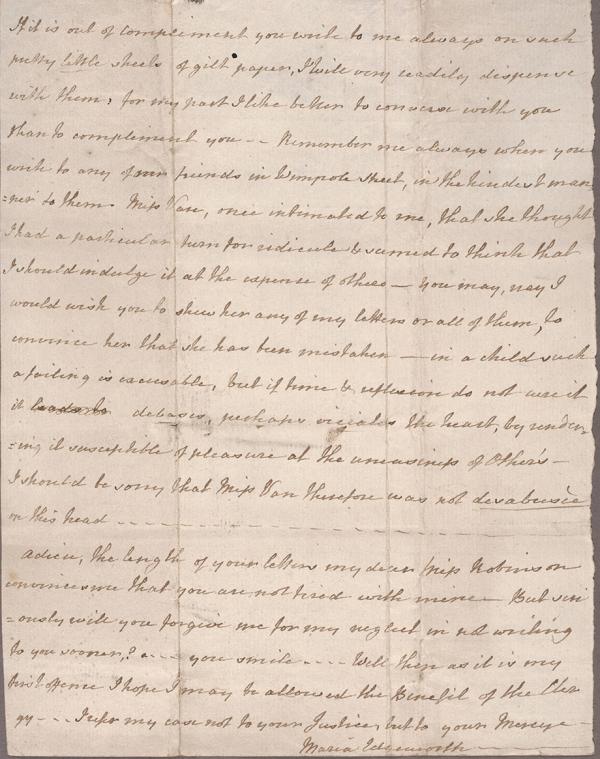 If it is out of compliment you write to me always on such
pretty little sheets of gilt paper, I will very readily dispense
with them; for my part I like better to converse with you
than to compliment you -- Remember me always when you
write to any of our friends in Wimpole Street, in the kindest man
=ner to them. Miss Van, once intimated to me, that she thought
I had a particular turn for ridicule & seemed to think that
I should indulge it at the expense of others — You may, nay I
would wish you to shew her any of my letters or all of them, to
convince her that she has been mistaken — in a child such
a failing is excusable, but if time & reflexion do not cure it
it debases, perhaps viciates the heart, by render-
=ing it susceptible of pleasure at the uneasiness of Other's —
I should be sorry that Miss Van therefore was not desabusée
on this head --------
Adieu, the length of your letters my dear Miss Robinson
convinces me that you are not tired with mine — But seri
=ously will you forgive me for my neglect in not writing
to you sooner? .... you smile .... Well then as it is my
first offence I hope I may be allowed the Benefit of the Cler
gy --- I refer my case not to your Justice, but to your Mercy —
Maria Edgeworth